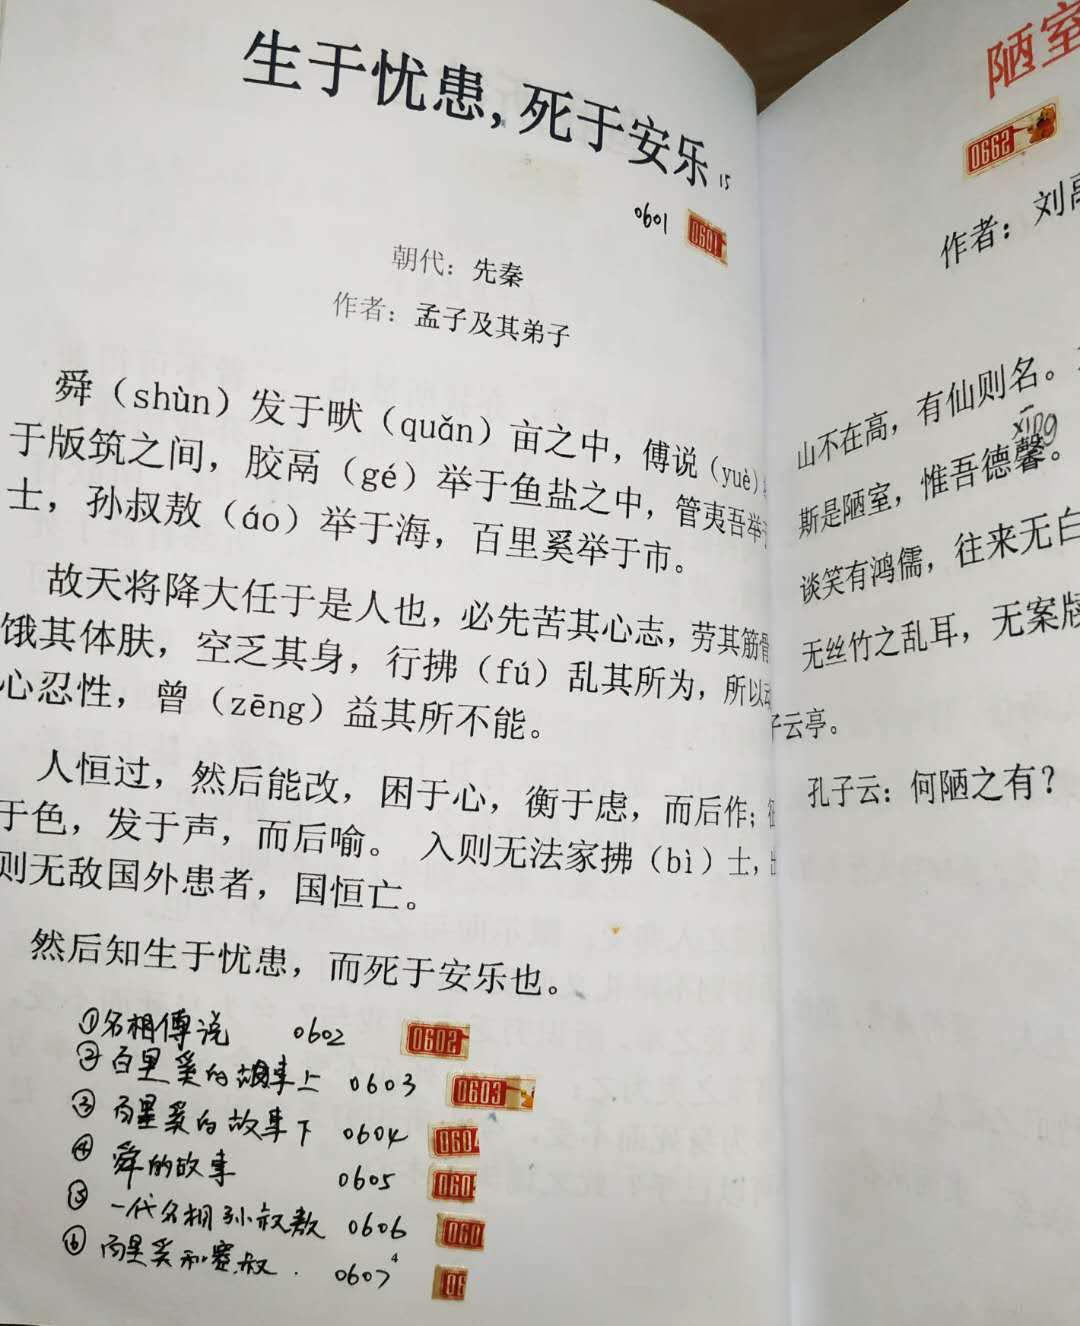 生于忧患，死于安乐 15
0601 0601
朝代：先秦
作者：孟子及其弟子
舜（shùn）发于畎（quǎn）亩之中，傅说（yuè）
于版筑之间，胶鬲（gé）举于鱼盐之中，管夷吾举
士，孙叔敖（áo）举于海，百里奚举于市。
故天将降大任于是人也，必先苦其心志，劳其筋骨
饿其体肤，空乏其身，行拂（fú）乱其所为，所以动
心忍性，曾（zēng）益其所不能。
人恒过，然后能改，困于心，衡于虑，而后作；
于色，发于声，而后喻。 入则无法家拂（bì）士，
则无敌国外患者，国恒亡。
然后知生于忧患，而死于安乐也。
①名相傅说 0602 0602
②百里奚的故事上 0603 0603
③百里奚的故事下 0604 0604
④舜的故事 0605 060
⑤一代名相孙叔敖 0606 060
⑥百里奚和蹇叔. 0607 4 06
陋室
0662
作者：刘禹
山不在高，有仙则名。
xīng
斯是陋室，惟吾德馨。
谈笑有鸿儒，往来无白
无丝竹之乱耳，无案牍
子云亭。
孔子云：何陋之有？